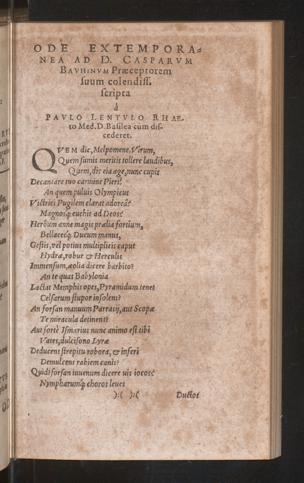 ODE EXTEMPORA-
NEA AD D. CASPARVM
BAVHINVM Præceptorem
suum colendiss.
scripta
à
PAVLO LENTVLO RHAE-
to Med. D. Basilea cum dis-
cederet.
QVEM dic, Melpomene, Virum,
Quem sumis meritis tollere laudibus,
Quem, dic eia age, nunc cupis
Decantare tuo carmine Pieri?
An quem pulvis Olympicus
Victrici Pugilem clarat adoreâ?
Magnosq́; evehis ad Deos?
Herbam anne magis prælia fortium,
Bellacesq́; Ducum manus,
Gestis, vel potius multiplicis caput
Hydræ, robur & Herculis
Immensum, æolia dicere barbito?
An te quas Babylonia
Lactat Memphis opes, Pyramidum tenet
Celsarum stupor insolens?
An forsan manuum Parrasij, aut Scopæ
Te miracula detinent?
Aut fortè Ismarius nunc animo est tibi
Vates, dulcisono Lyræ
Deducens strepitu robora, & inferi
Demulcens rabiem canis?
Quid? forsan iuvenum dicere vis iocos?
Nympharumq́; choros leves
):( ):( Ductos